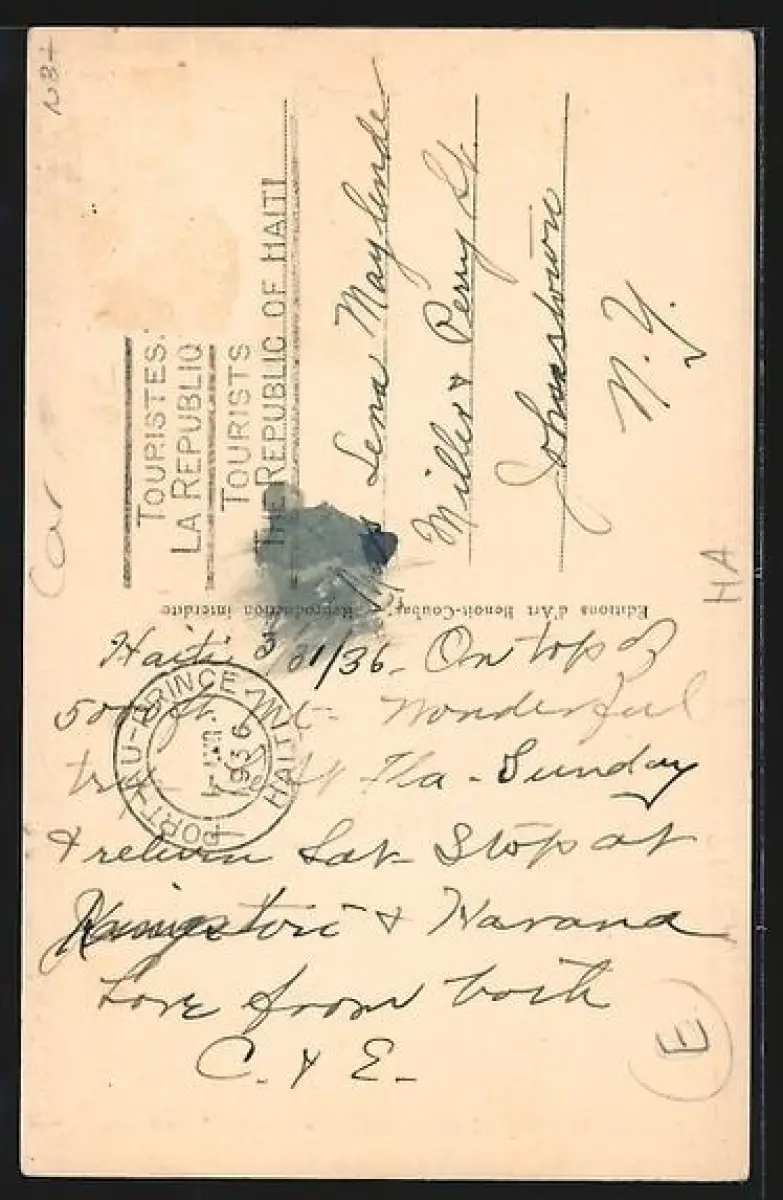 Haiti 3/31/36. On top of
5000 ft Mt. Wonderful
Fla - Sunday
& return Sat - Stop at
Kingston & Havana
Love from both
C. & E.
Lena Maylender
Miller & Perry St.
Johnstown
N.Y.
TOURISTES.
LA REPUBLIQ
TOURISTS
THE REPUBLIC OF HAITI
Editions d'Art Benoit-Coubay. Reproduction interdite
PORT-AU-PRINCE
1936
HAITI
Car
HA
E